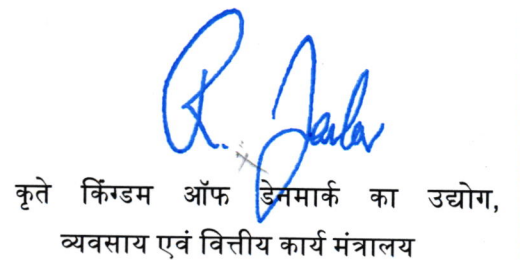 कृते किंग्डम ऑफ डेनमार्क का उद्योग,
व्यवसाय एवं वित्तीय कार्य मंत्रालय